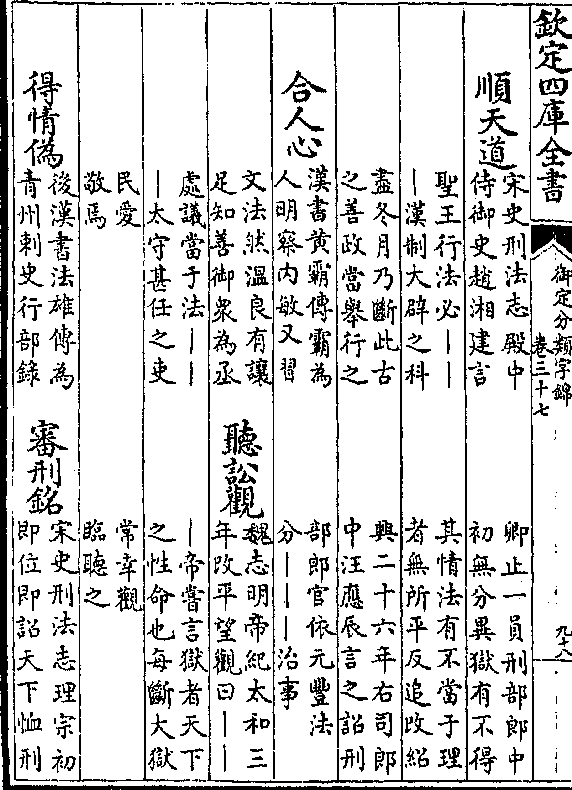 欽定四庫全書
御定分類字錦
卷三十七
九十八
順天道
宋史刑法志殿中
侍御史趙湘建言
聖王行法必——
—漢制大辟之科
盡冬月乃斷此古
之善政當舉行之
合人心
漢書黃霸傳霸為
人明察內敏又習
文法然溫良有讓
足知善御衆為丞
處議當于法——
—太守甚任之吏
民愛
敬焉
得情偽
後漢書法雄傳為
青州刺史行部錄
卿止一員刑部郎中
初無分異獄有不得
其情法有不當于理
者無所平反追改紹
興二十六年右司郎
中汪應辰言之詔刑
部郎官依元豐法
分———治事
聽訟觀
魏志明帝紀太和三
年改平望觀曰——
—帝嘗言獄者天下
之性命也每斷大獄
常幸觀
臨聽之
審刑銘
宋史刑法志理宗初
即位即詔天下恤刑